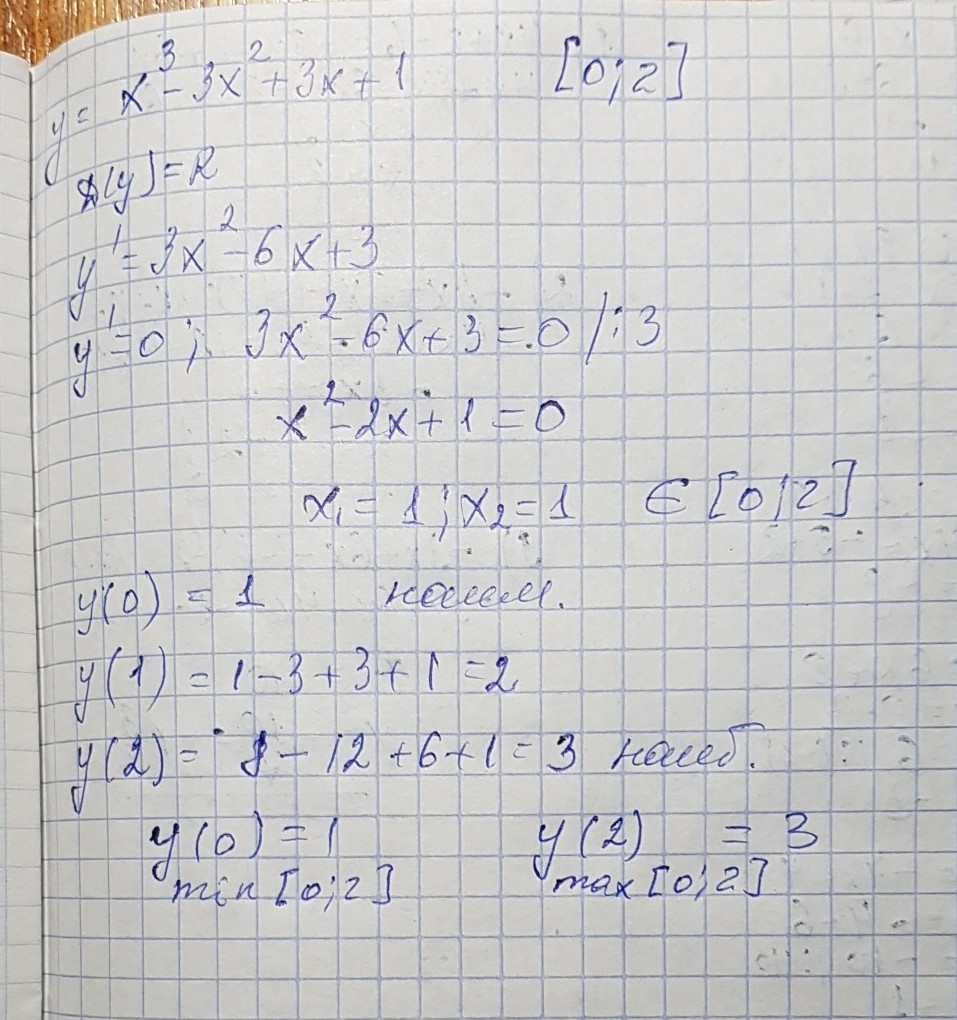 y = x³ - 3x² + 3x + 1 [0; 2]
D(y) = R
y' = 3x² - 6x + 3
y' = 0; 3x² - 6x + 3 = 0 /:3
x² - 2x + 1 = 0
x₁ = 1; x₂ = 1 ∈ [0; 2]
y(0) = 1 наим.
y(1) = 1 - 3 + 3 + 1 = 2
y(2) = 8 - 12 + 6 + 1 = 3 наиб.
y(0) = 1 y(2) = 3
min [0; 2] max [0; 2]